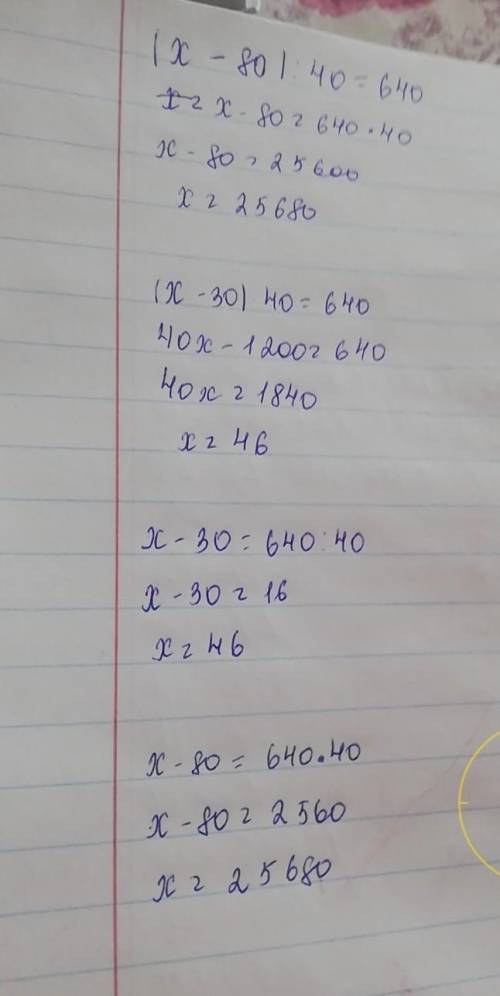 (x - 80) : 40 = 640
x = x - 80 = 640 · 40
x - 80 = 25600
x = 25680
(x - 30) 40 = 640
40x - 1200 = 640
40x = 1840
x = 46
x - 30 = 640 : 40
x - 30 = 16
x = 46
x - 80 = 640 · 40
x - 80 = 2560
x = 25680